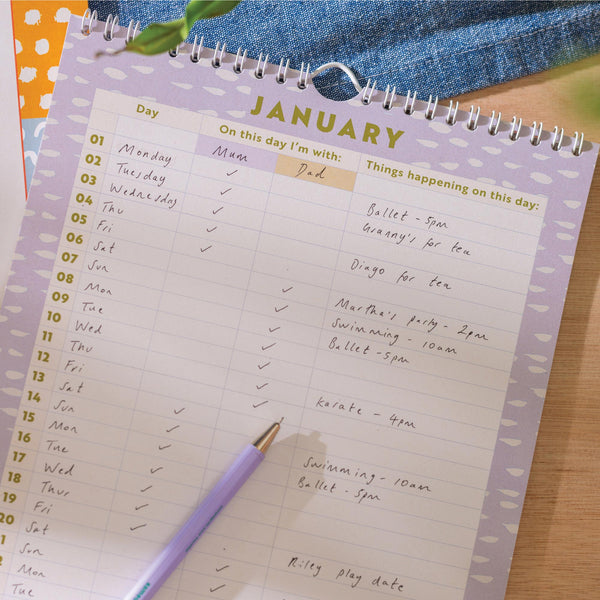 JANUARY
Day On this day I'm with: Things happening on this day:
Mum Dad
01 Monday Ballet - 5pm
02 Tuesday Granny's for tea
03 Wednesday
04 Thu Diago for tea
05 Fri
06 Sat Martha's party - 2pm
07 Sun Swimming - 10am
08 Mon Ballet - 5pm
09 Tue
10 Wed
11 Thu Karate - 4pm
12 Fri
13 Sat
14 Sun Swimming - 10am
15 Mon Ballet - 5pm
16 Tue
17 Wed
18 Thur
19 Fri Riley play date
20 Sat
1 Sun
2 Mon
Tue